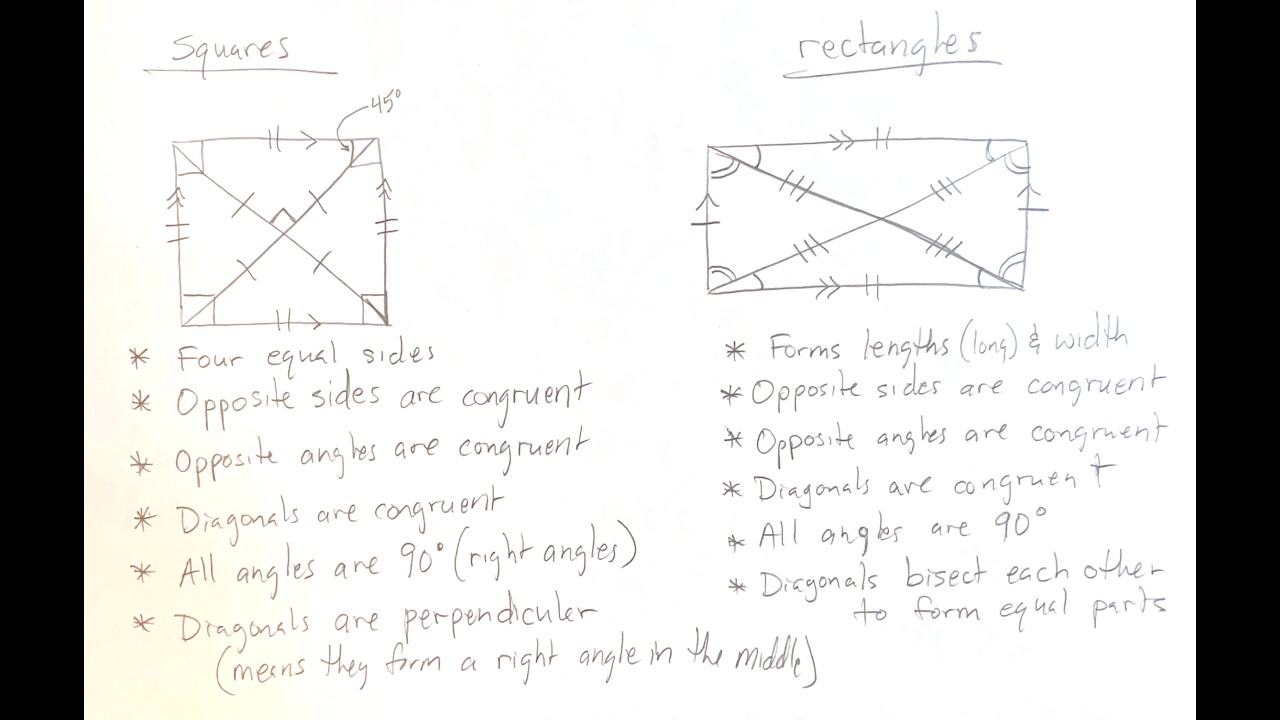 Squares
45°
* Four equal sides
* Opposite sides are congruent
* Opposite angles are congruent
* Diagonals are congruent
* All angles are 90° (right angles)
* Diagonals are perpendiculer
(means they form a right angle in the middle)
rectangles
* Forms lengths (long) & width
* Opposite sides are congruent
* Opposite angles are congruent
* Diagonals are congruent
* All angles are 90°
* Diagonals bisect each other
to form equal parts